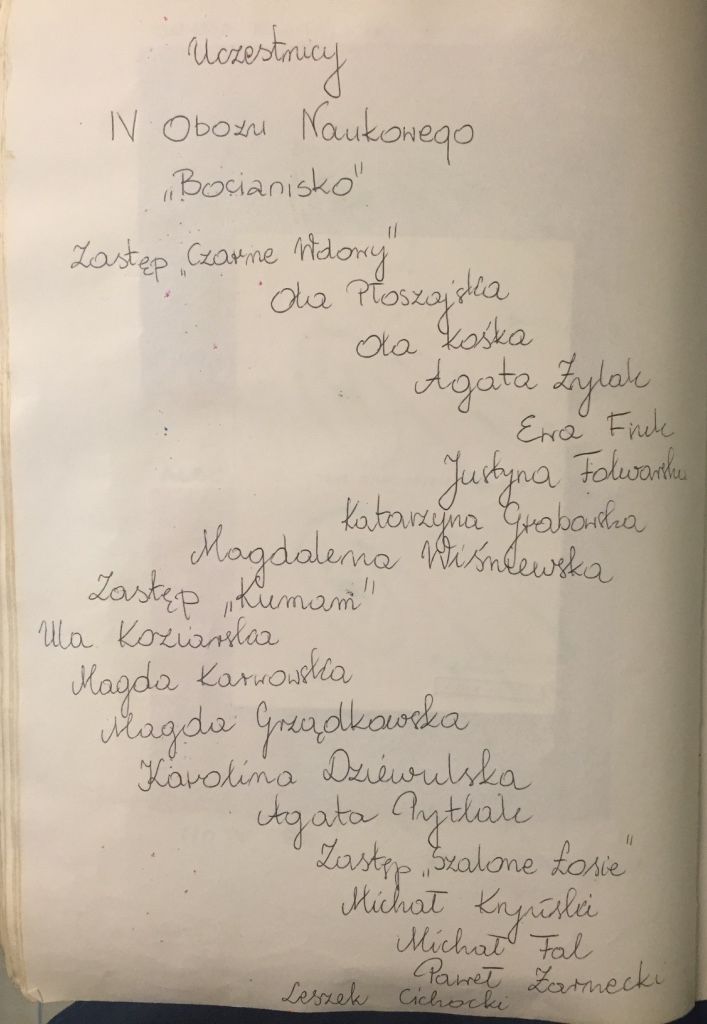 Uczestnicy
IV Obozu Naukowego
„Bocianisko"
Zastęp „Czarne Wdowy"
Ola Płoszajska
Ola Kośka
Agata Żylak
Ewa
Justyna
Katarzyna Grabowska
Magdalena Wiśniewska
Zastęp „Kumam"
Ula Koziarska
Magda Karwowska
Magda Grządkowska
Karolina Dziewulska
Agata Pytlak
Zastęp „Szalone Łosie"
Michał
Michał Fal
Paweł Żarnecki
Leszek Cichocki